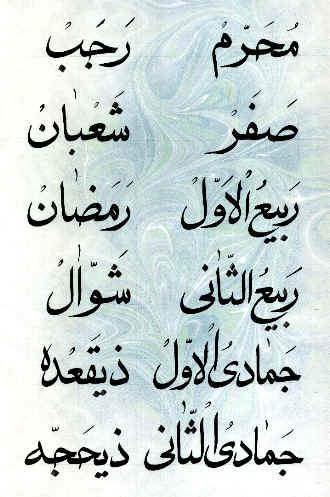 مُحَرَّمْ رَجَبْ
صَفَرْ شَعْبٰانْ
رَبيعُ الْاَوَّلْ رَمَضٰانْ
رَبيعُ الثّٰانى شَوّٰالْ
جَمٰادىُ الْاَوَّلْ ذيقَعْدِه
جَمٰادىُ الثّٰانى ذيحَجّه